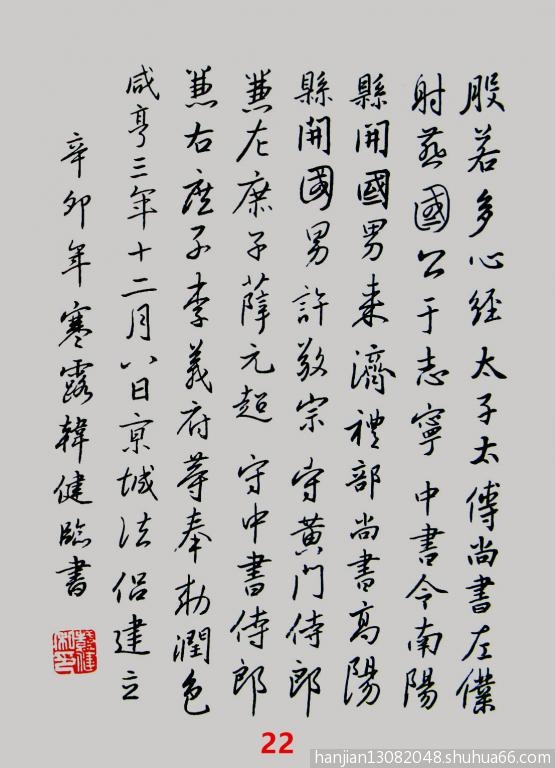 般若多心經太子太傅尚書左僕
射燕國公于志寧 中書令南陽
縣開國男來濟禮部尚書高陽
縣開國男許敬宗 守黃門侍郎
兼左庶子薛元超 守中書侍郎
兼右庶子李義府等奉勅潤色
咸亨三年十二月八日京城法侶建立
辛卯年寒露韓健臨書
22
hanjian13082048.shuhua66.com